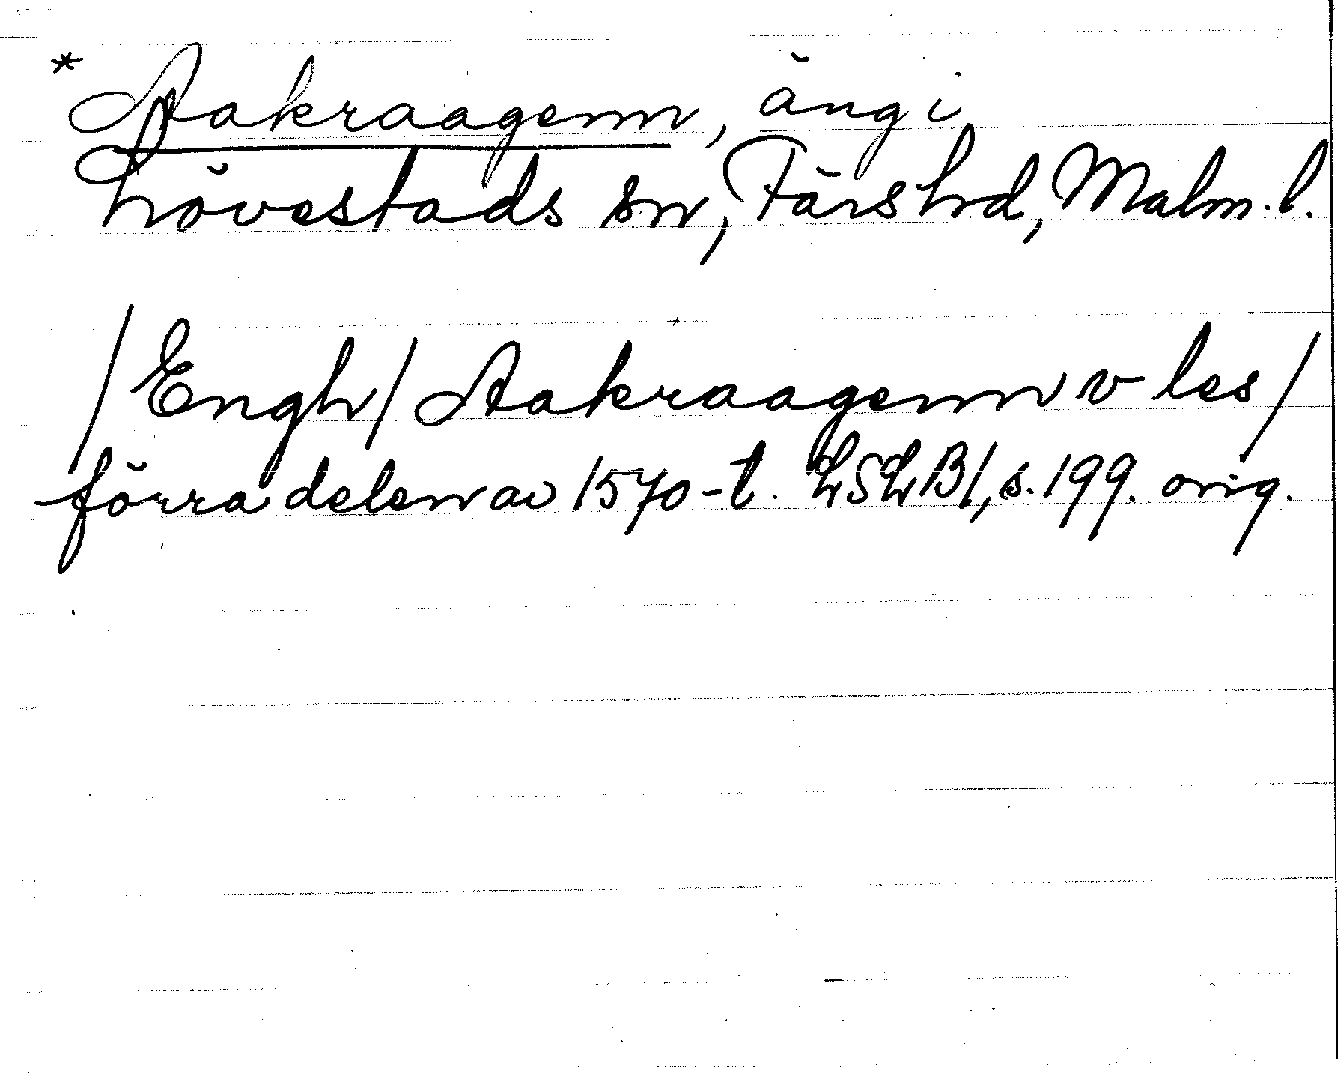 * Aakraagenn, äng i
Lövestads sn, Färs hd, Malm. l.
/Engh/ Aakraagenn v les/
förra delen av 1570-t. LSLB1, s. 199. orig.